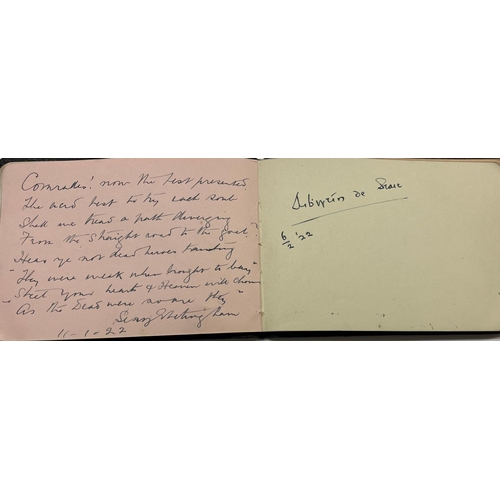 Comrades! now the test presented
The acid test to try each soul
Shall we tread a path diverging
From the straight road to the goal?
Hear ye not dead heroes taunting
"They were weak when brought to bay"
"Steel your hearts & Heaven will
As the Dead were so are they"
11-1-22
de
6/2 '22